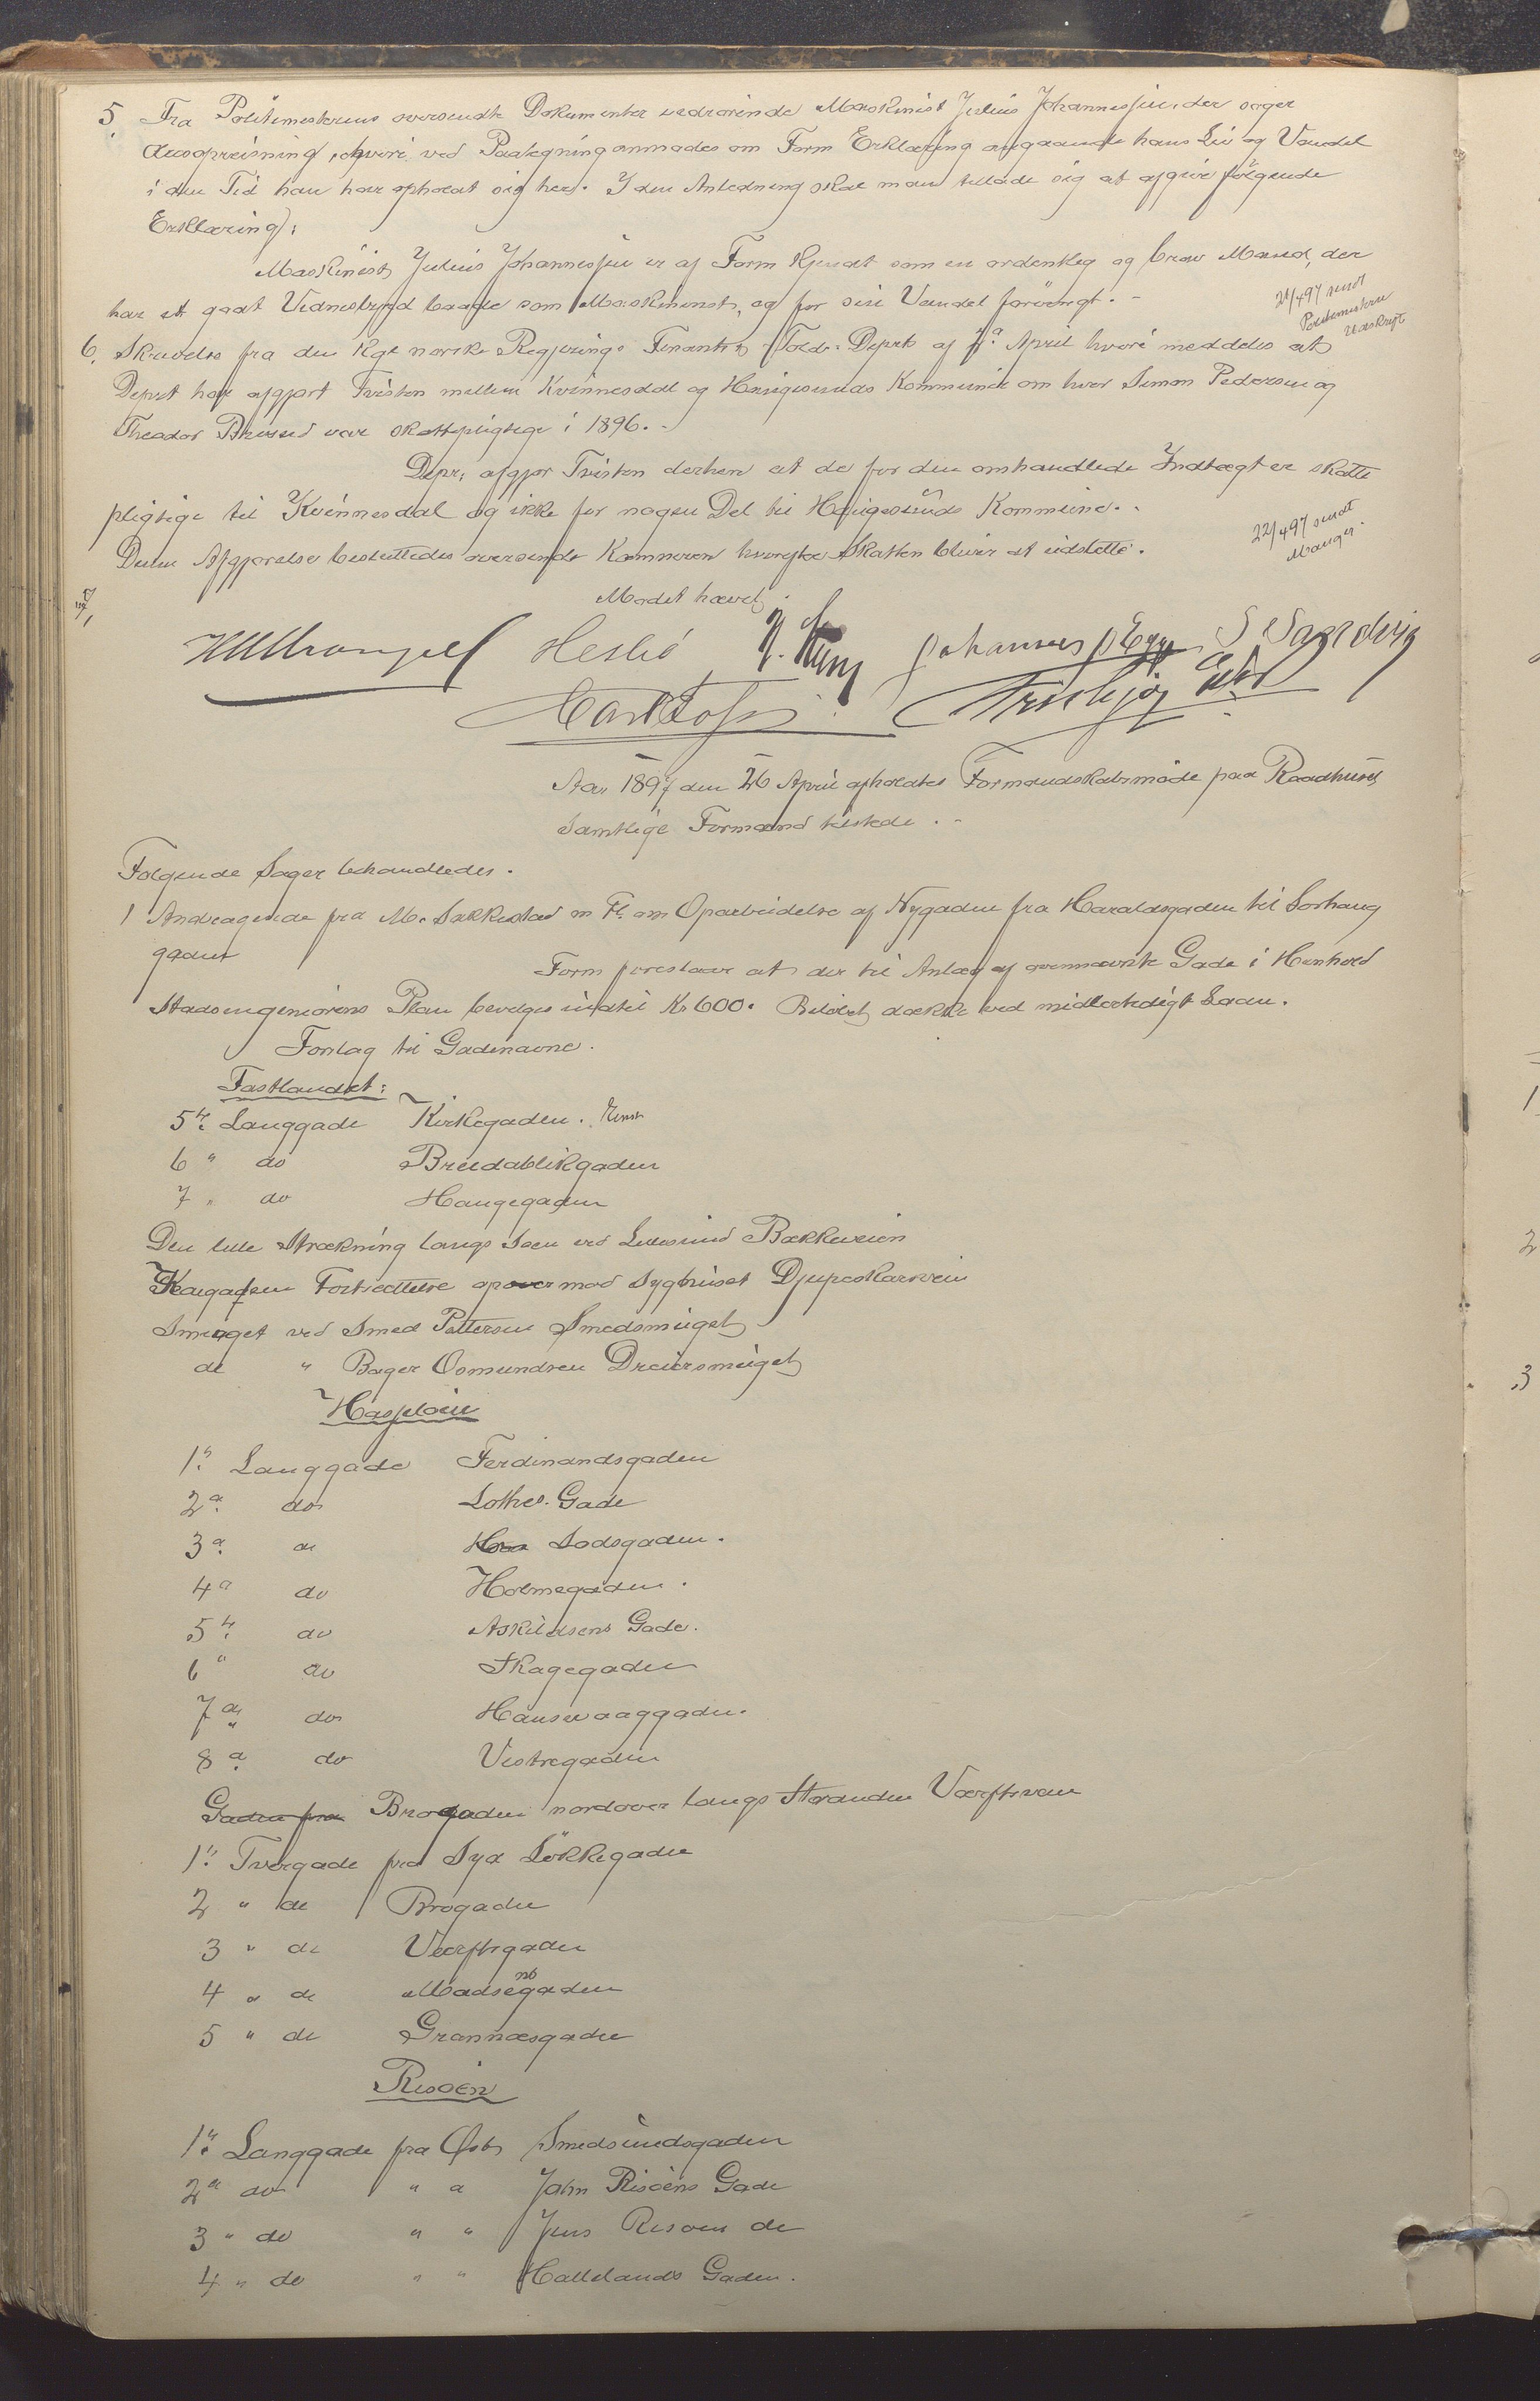 5. Fra Politimesterens oversendte Dokumenter vedrørende Maskinist Julius Johannessen, der søger
Æresopreisning, hvori ved Paategning anmodes om Form Erklæring angaaende hans Liv og Vandel
i den Tid han har opholdt sig her. I den Anledning skal man tillade sig at afgive følgende
Erklæring:
Maskinist Julius Johannessen er af Form kjendt som en ordentlig og brav Mand, der
har et godt Vidnesbyrd baade som Maskinist, og for sin Vandel forøvrigt. -
21/4 97 sendt
Politimesteren
Udskrift
6. Skrivelse fra den Kgl norske Regjerings Finants & Told-Deprt af April hvori meddeles at
Deprt har afgjort Tvisten mellem Kvinnesdal og Haugesunds Kommune om hvor Simon Pedersen og
Theodor var skattepligtige i 1896. -
Depr: afgjør Tvisten derhen at de for den omhandlede Indtægt er skatte
pligtige til Kvinnesdal og ikke for nogen Del til Haugesunds Kommune. -
Denne Afgjørelse besluttedes oversendt Kæmneren hvorefter Skatten bliver at udslette.
22/4 97 sendt
Mauger.
7,
Mødet hævet.
Aar 1897 den 26 April afholdtes Formandskabsmøde paa Raadhuset
Samtlige Formænd tilstede. -
Følgende Sager behandledes.
1 Andragende fra M. Sakkestad m Fl. om Oparbeidelse af Nygaden fra Haraldsgaden til Sørhaug
gaden
Form foreslaar at der til Anlæg af ovennævnte Gade i Henhold
Stadsingeniørens Plan bevilges indtil Kr 600. Beløbet dækkes ved midlertidigt Laan.
Forslag til Gadenavne.
Fastlandet:
5te Langgade Kirkegaden.
6 " do Breidablikgaden
7 " do Haugegaden
Den lille Strækning langs Søen ved Lillesund Bakkeveien
Kaigadens Fortsættelse opover mod Syghuset Djupeskarsvein
Smuget ved Smed Pettersen Smedsmuget
do " Bager Osmundsen Dreiersmuget
Hasseløen
1te Langgade Ferdinandsgaden
2a do Lothes Gade
3a do Sodsgaden.
4a do Holmegaden.
5te do Askildsens Gade.
6 " do Skagegaden
7a do Hansevaaggaden.
8a do Vestregaden
Gaden fra Brogaden nordover langs Stranden Værftsveien
1te Tvergade fra Syd Løkkegaden
2 " do Brogaden
3 " do Værftsgaden
4 " do Madsegaden
5 " do Grannæsgaden
Risøen
1te Langgade fra Øst Smedsundsgaden
2a do " " John Risøens Gade
3 " do " " Jens Risøens do
4 " do " " Hallelands Gaden.
1
2
3